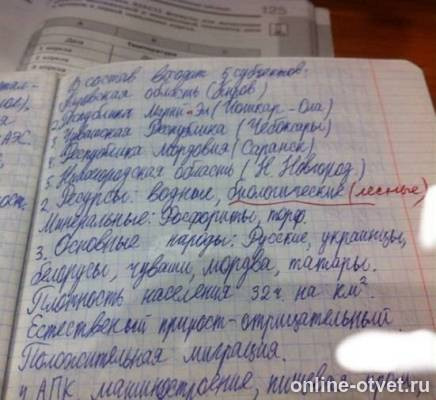 125
В состав входит 5 субъектов:
область (Киров)
2. Республика Марий-Эл (Йошкар-Ола)
3. Чувашская Республика (Чебоксары)
4. Республика Мордовия (Саранск)
5. Нижегородская область (Н. Новгород)
2. Ресурсы: водные, биологические (лесные)
Минеральные: Фосфориты, торф.
3. Основные народы: Русские, украинцы,
белорусы, чуваши, мордва, татары.
Плотность населения 32 ч. на км²
Естественый прирост-отрицательный.
Положительная миграция.
4. АПК, машиностроение, пищевая пром,
online-otvet.ru